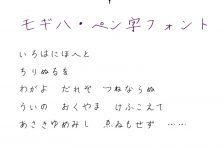 モギハ・ペン字フォント
いろはにほへと
ちりぬるを
わがよ だれぞ つねならぬ
ういの おくやま けふこえて
あさきゆめみし ゑねもせず ……